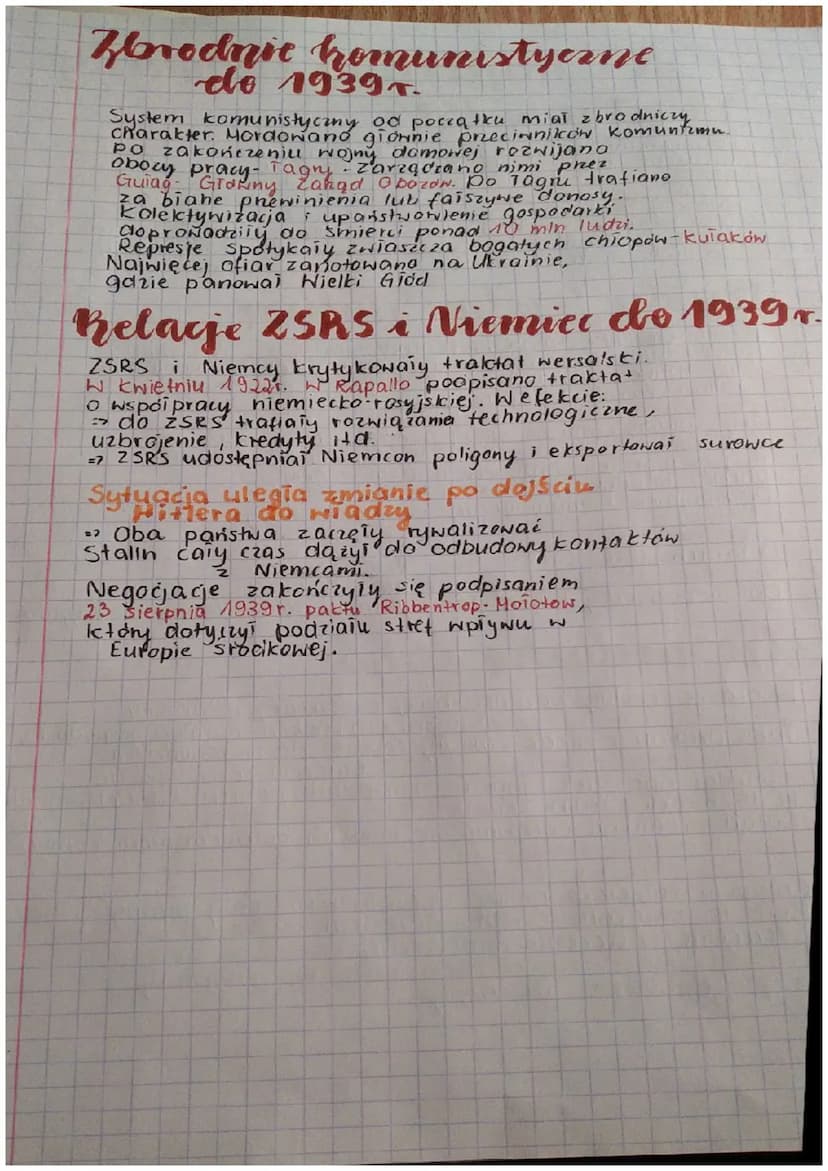 Zbrodnie komunistyczne
do 1939r.
System komunistyczny od początku miał zbrodniczy
charakter. Mordowano głównie przeciwników komunizmu.
Po zakończeniu wojny domowej rozwijano
obozy pracy - Łagry. Zarządzano nimi przez
Gułag - Główny Zarząd Obozów. Do łagru trafiano
za błahe przewinienia lub fałszywe donosy.
Kolektywizacja i upaństwowienie gospodarki
doprowadziły do śmierci ponad 10 mln ludzi.
Represje spotykały zwłaszcza bogatych chłopów - kułaków
Najwięcej ofiar zanotowano na Ukrainie,
gdzie panował Wielki Głód
Relacje ZSRS i Niemiec do 1939r.
ZSRS i Niemcy krytykowały traktat wersalski.
W kwietniu 1922r. w Rapallo podpisano traktat
o współpracy niemiecko-rosyjskiej. W efekcie:
=> do ZSRS trafiały rozwiązania technologiczne,
uzbrojenie, kredyty itd.
=> ZSRS udostępniał Niemcon poligony i eksportował surowce
Sytuacja uległa zmianie po dojściu
Hitlera do władzy
=> Oba państwa zaczęły rywalizować
Stalin cały czas dążył do odbudowy kontaktów
z Niemcami.
Negocjacje zakończyły się podpisaniem
23 sierpnia 1939r. paktu Ribbentrop-Mołotow,
który dotyczył podziału stref wpływu w
Europie środkowej.